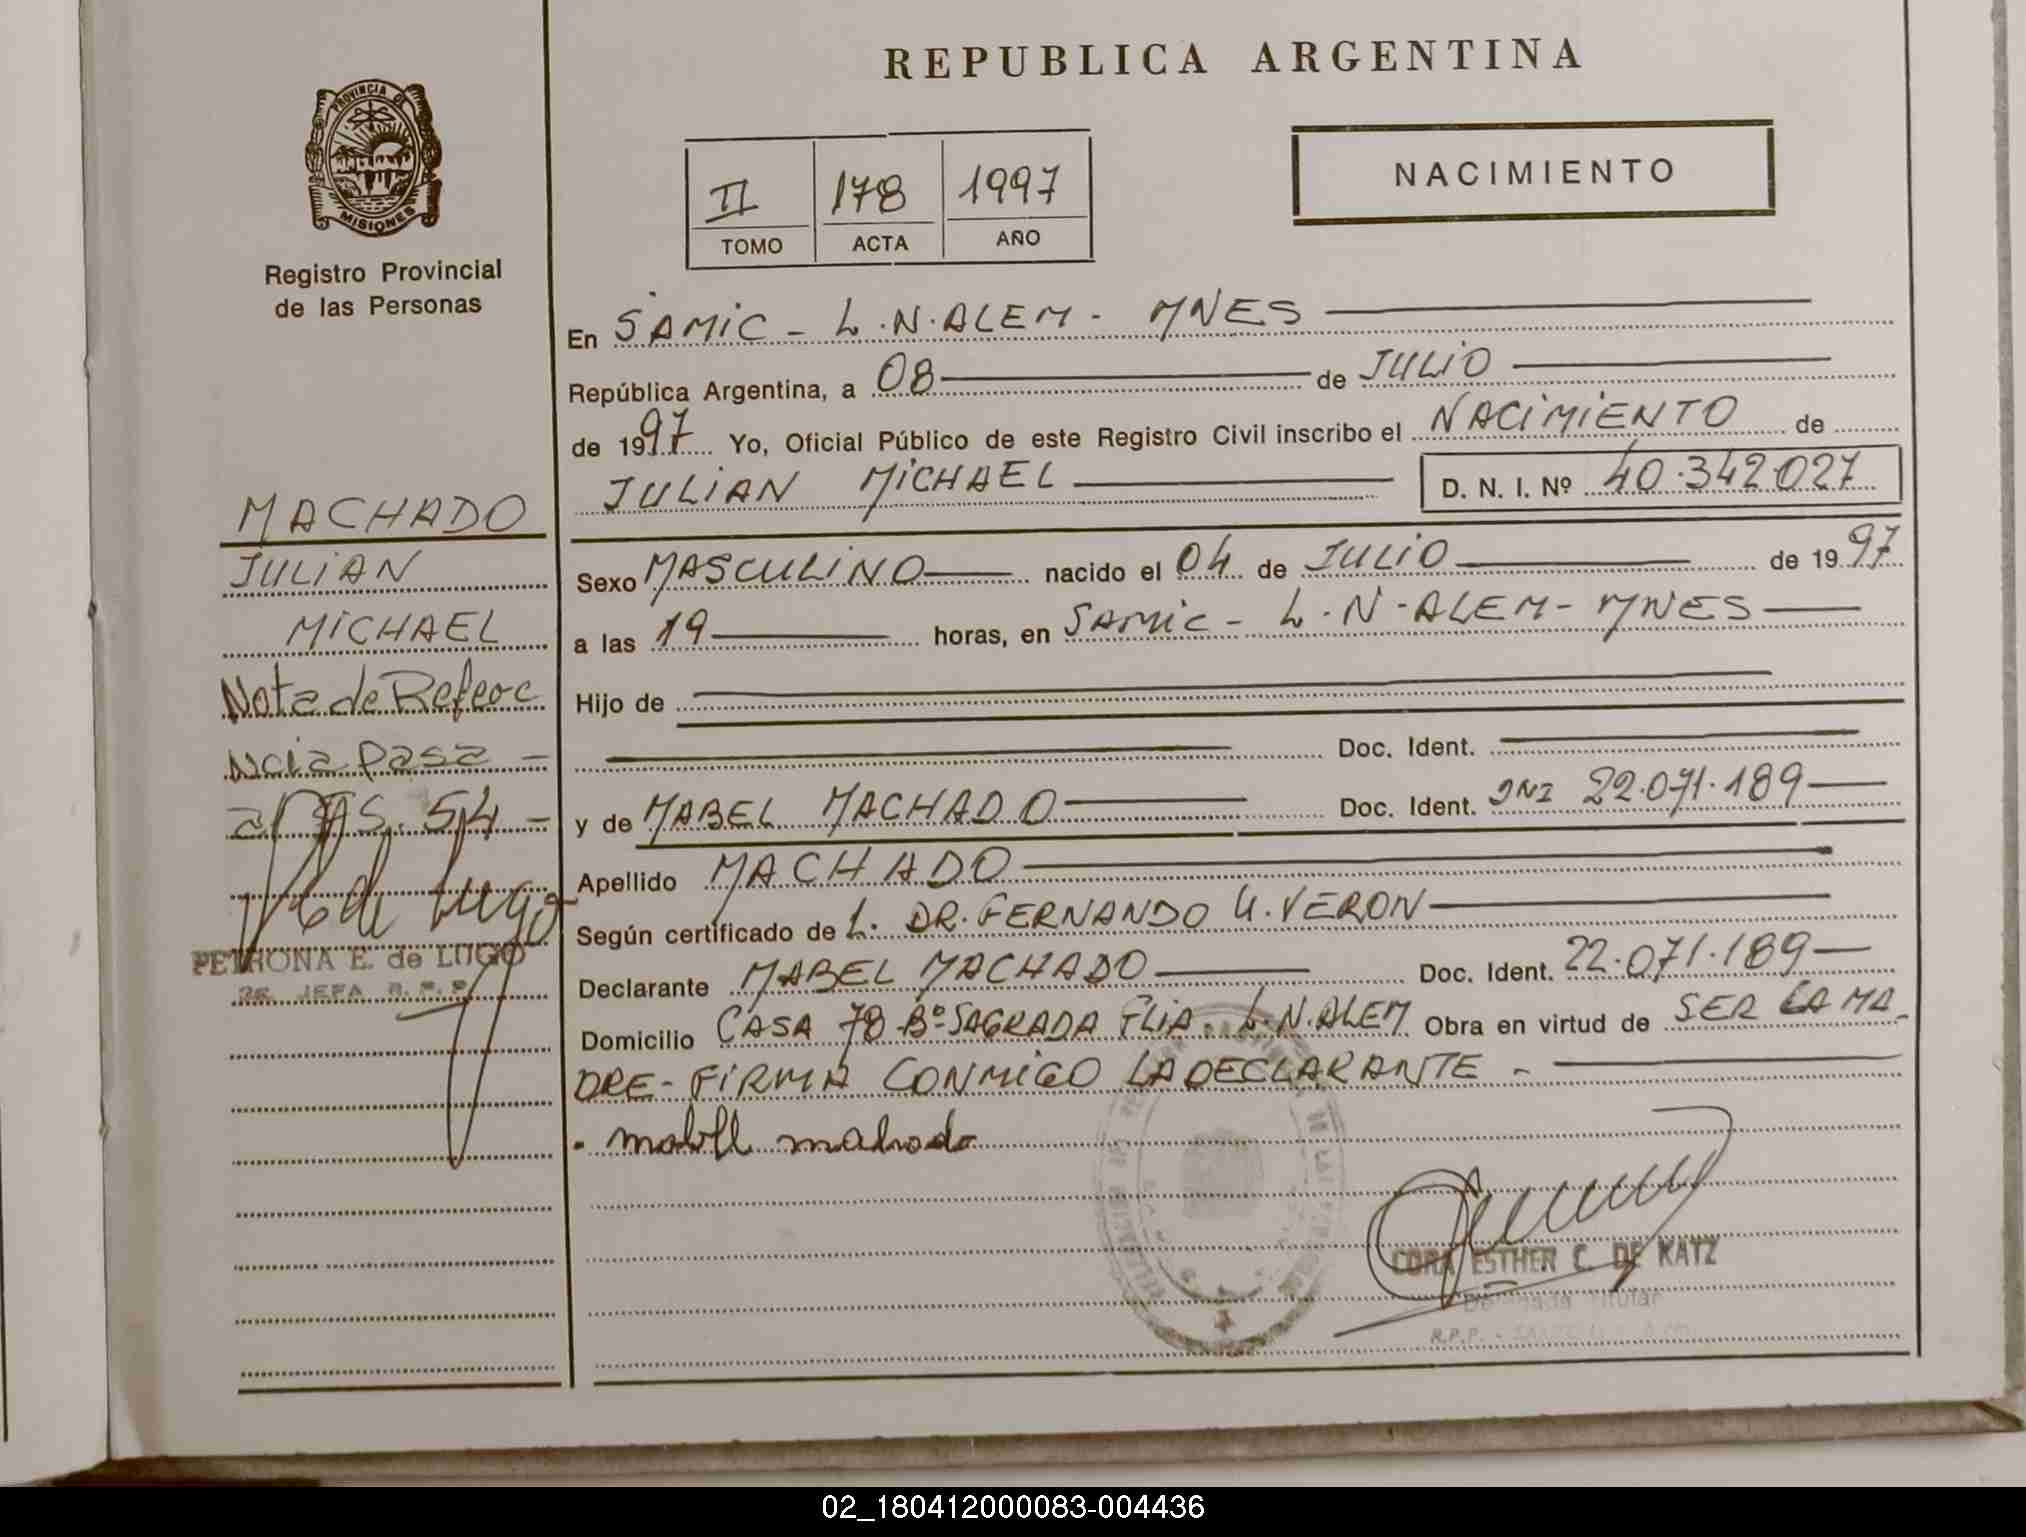 REPUBLICA ARGENTINA
PROVINCIA DE
MISIONES
Registro Provincial
de las Personas
II 178 1997
TOMO ACTA AÑO
NACIMIENTO
En SAMIC - L.N.ALEM - MNES
República Argentina, a 08 de JULIO
de 1997 Yo, Oficial Público de este Registro Civil inscribo el NACIMIENTO de
JULIAN MICHAEL D. N. I. Nº 40.342.027
Sexo MASCULINO nacido el 04 de JULIO de 1997
a las 19 horas, en SAMIC - L.N-ALEM-MNES
Hijo de
Doc. Ident.
y de MABEL MACHADO Doc. Ident. DNI 22.071.189
Apellido MACHADO
Según certificado de L. DR. FERNANDO G. VERON
Declarante MABEL MACHADO Doc. Ident. 22.071.189
Domicilio CASA 78 Bº SAGRADA FLIA. L.N.ALEM Obra en virtud de SER LA MA-
DRE-FIRMA CONMIGO LA DECLARANTE -
mabell machado
CORA ESTHER C. DE KATZ
Delegada Titular
R.P.P. -
MACHADO
JULIAN
MICHAEL
Nota de Refere
ncia Pasa -
al 54 -
de Lugo
PETRONA E. de LUGO
JEFA R.P.P.
02_180412000083-004436